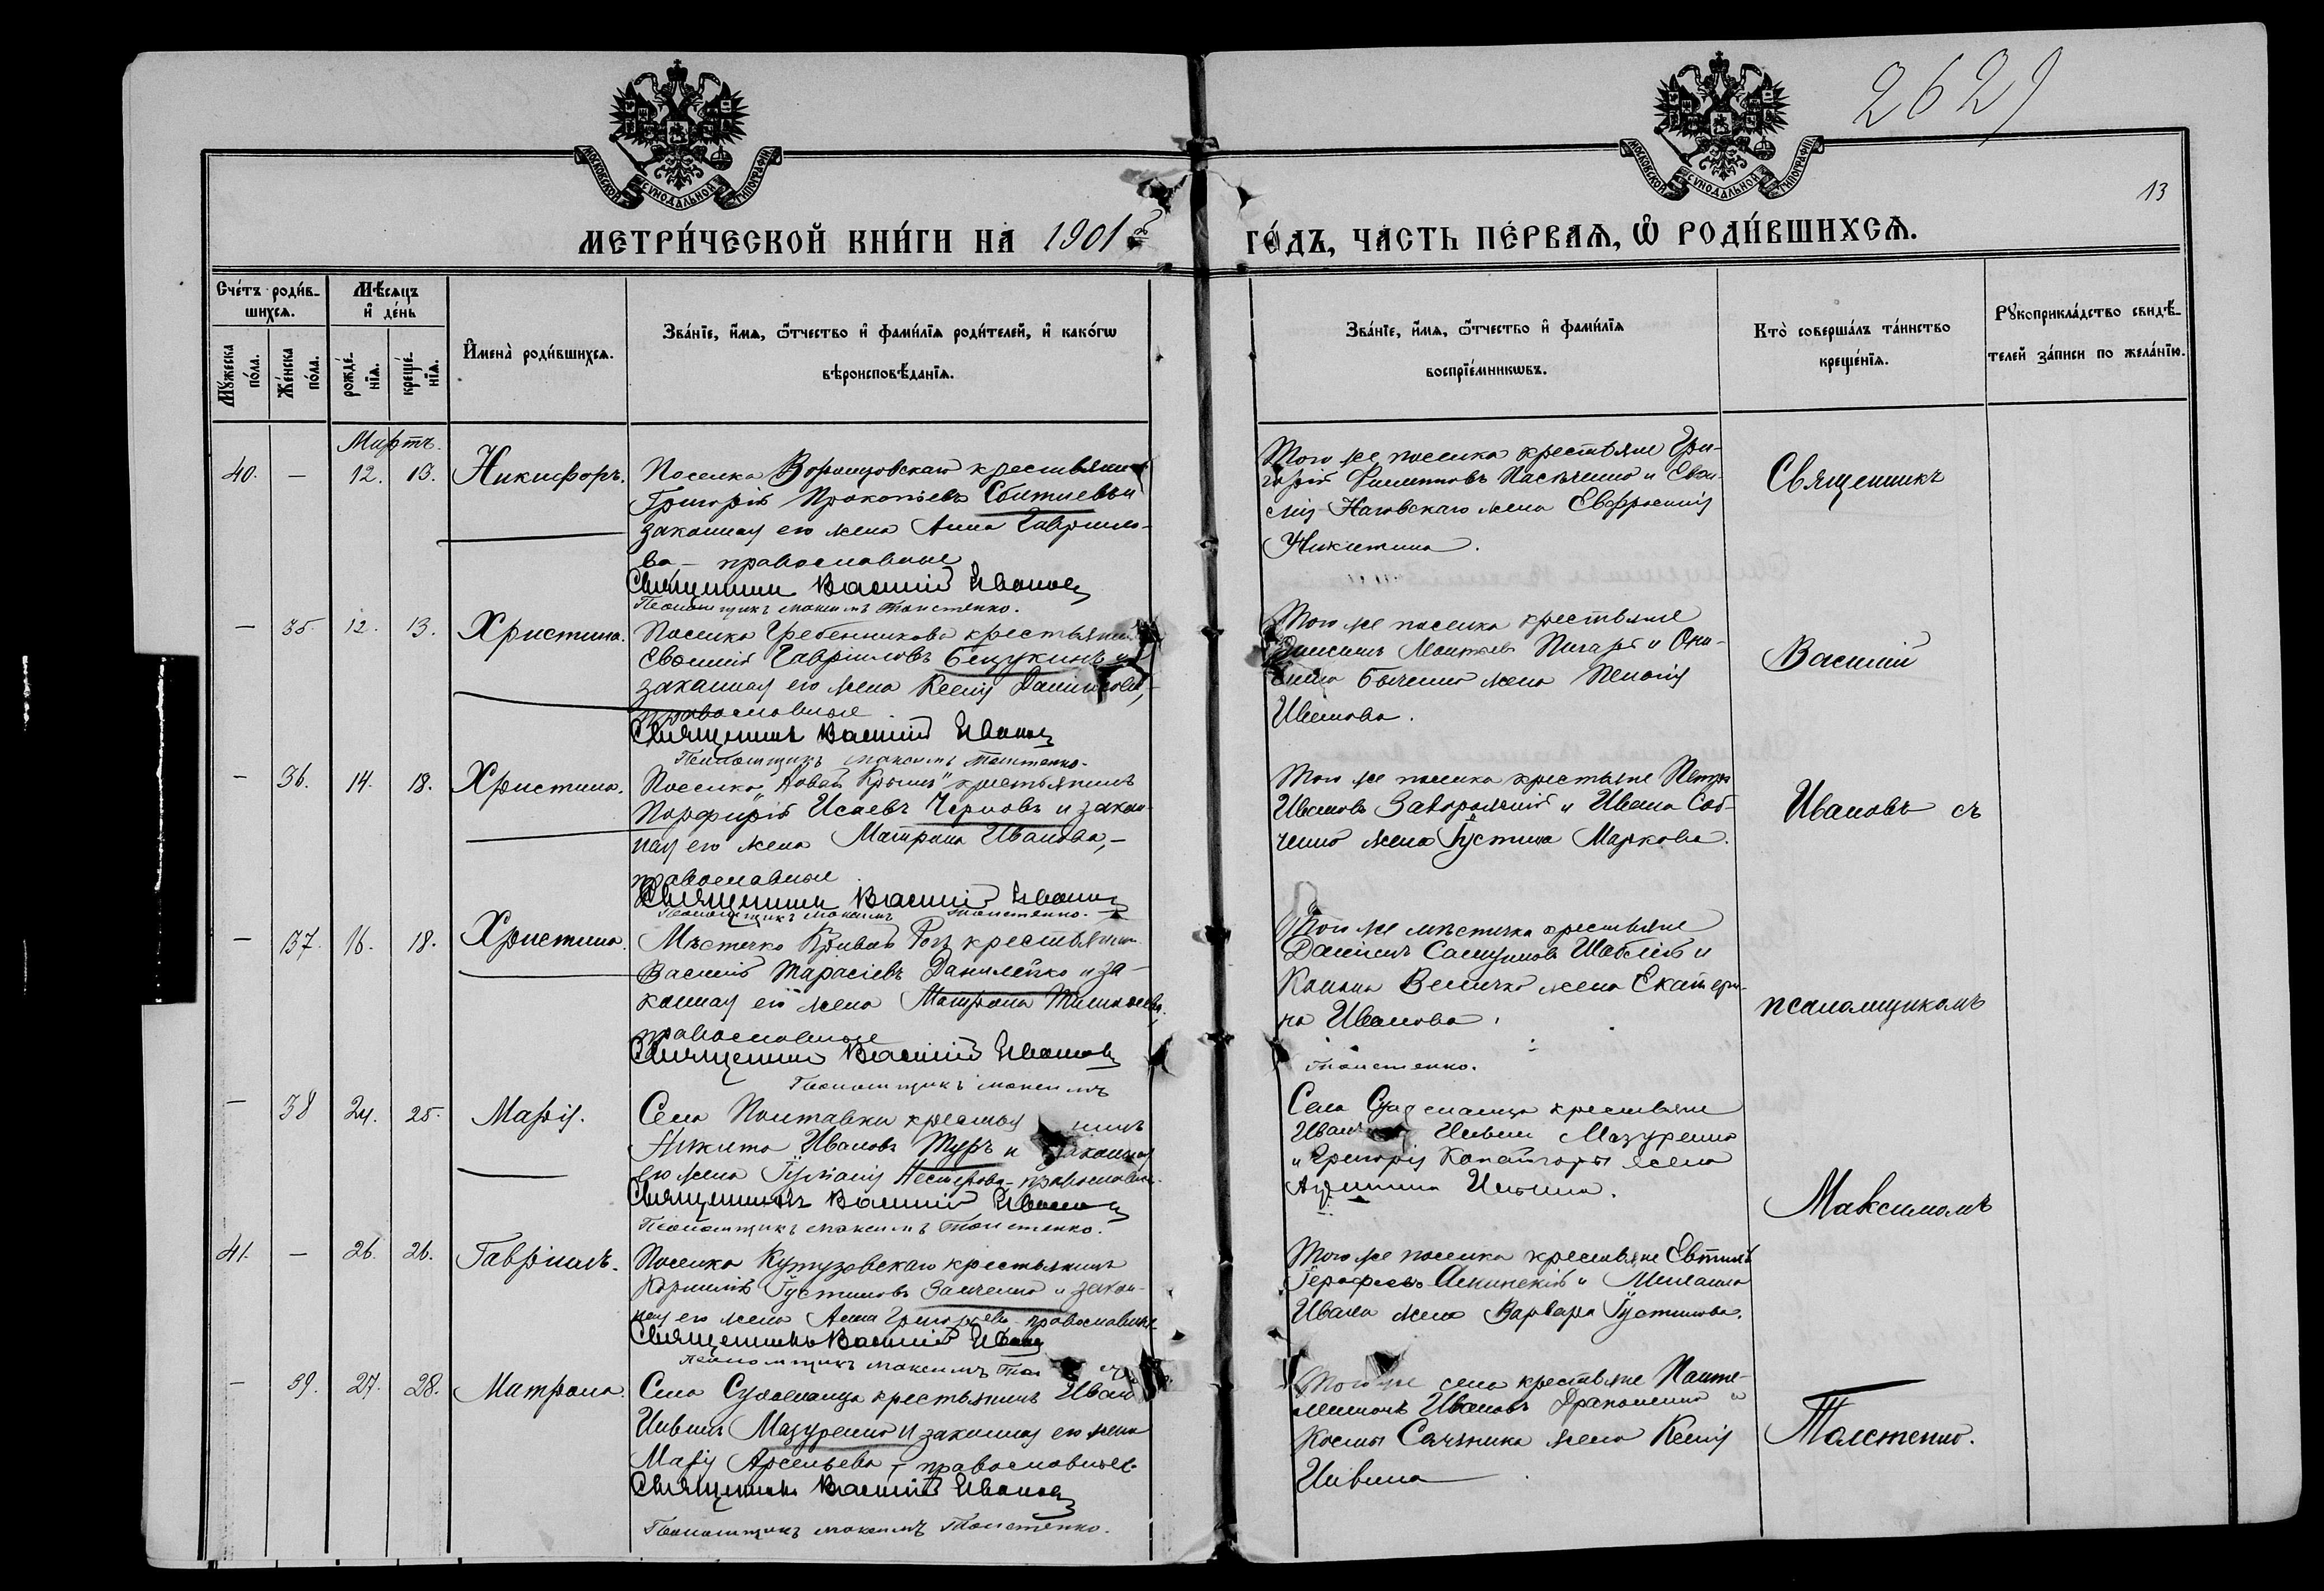 2629
13
МОСКОВСКОЙ СѴНОДАЛЬНОЙ ТИПОГРАФІИ
МОСКОВСКОЙ СѴНОДАЛЬНОЙ ТИПОГРАФІИ
МЕТРИ́ЧЕСКОЙ КНИ́ГИ НА 1901й ГО́ДЪ, ЧА́СТЬ ПЕ́РВАѦ, Ѡ҆ РОДИ́ВШИХСѦ.
Сче́тъ роди́в-
шихсѧ.
Мꙋ́жеска по́ла.
Же́нска по́ла.
Мѣ́сѧцъ
и҆ де́нь
рожде́-нїѧ.
креще́-нїѧ.
И҆мена̀ роди́вшихсѧ.
Зва́нїе, и҆́мѧ, ѻ҆́тчество и҆ фами́лїѧ роди́телей, и҆ како́гѡ
вѣроисповѣ́данїѧ.
Зва́нїе, и҆́мѧ, ѻ҆́тчество и҆ фами́лїѧ
воспрїе́мникѡвъ.
Кто̀ соверша́лъ та́инство
креще́нїѧ.
Рꙋкоприкла́дство свидѣ́-
телей за́писи по жела́нїю.
Мартъ.
40. — 12. 13. Никифоръ.
Поселка Воронцовскаго крестьянинъ
Григорій Прокопьевъ Сбитневъ и
законная его жена Анна Гаврило-
ва, – православные
Священникъ Василій Ивановъ
Псаломщикъ Максимъ Толстенко.
Того же поселка крестьяне Гри-
горій Филипповъ Пасѣченко и
Наговскаго жена Евфросинія
Никитина.
Священникъ
— 35. 12. 13. Христина.
Поселка Гребенникова крестьянинъ
Евсигній Гавріиловъ Бецукинъ и
законная его жена Ксенія Даніилова,
православные
Священникъ Василій Ивановъ
Псаломщикъ Максимъ Толстенко.
Того же поселка крестьяне
жена Пелагія
Иванова.
Василій
— 36. 14. 18. Христина.
Поселка „Новый Крымъ" крестьянинъ
Порфирій Исаевъ Черновъ и закон-
ная его жена Матрона Иванова, –
православные.
Священникъ Василій Ивановъ
Псаломщикъ Максимъ Толстенко.
Того же поселка крестьяне Петръ
Ивановъ Завгородній и Ивана Соб-
ченко жена Іустина Маркова.
Ивановъ съ
— 37. 16. 18. Христина.
Мѣстечка Кривой Рогъ крестьянинъ
Василій Тарасіевъ Даниленко и за-
конная его жена Матрона Тимофеева,
православные
Священникъ Василій Ивановъ
Псаломщикъ Максимъ Толстенко.
Того же мѣстечка крестьяне
Даніилъ Самуиловъ Шаблій и
Конона Величко жена Екатери-
на Иванова.
псаломщикомъ
— 38 24. 25. Марія.
Села Полтавки крестьянинъ
Никита Ивановъ Туръ и законная
его жена Іуліанія Нестерова – православн.
Священникъ Василій Ивановъ
Псаломщикъ Максимъ Толстенко.
Села крестьяне
Иванъ Мазуренко
и Григорія жена
Максимомъ
41. — 26. 26. Гавріилъ.
Поселка Кутузовскаго крестьянинъ
Корнилій Іустиновъ Заиченко и закон-
ная его жена Анна Григорьева – православные
Священникъ Василій Ивановъ
Псаломщикъ Максимъ Тол
Того же поселка крестьяне
Ивана жена Варвара Іустинова.
— 39. 27. 28. Матрона.
Села крестьянинъ Иванъ
Мазуренко и законная его жена
Марія Арсеньева, – православные
Священникъ Василій Ивановъ
Псаломщикъ Максимъ Толстенко.
Того же села крестьяне Панте-
леимонъ Ивановъ и
Космы жена Ксенія
Толстенко.